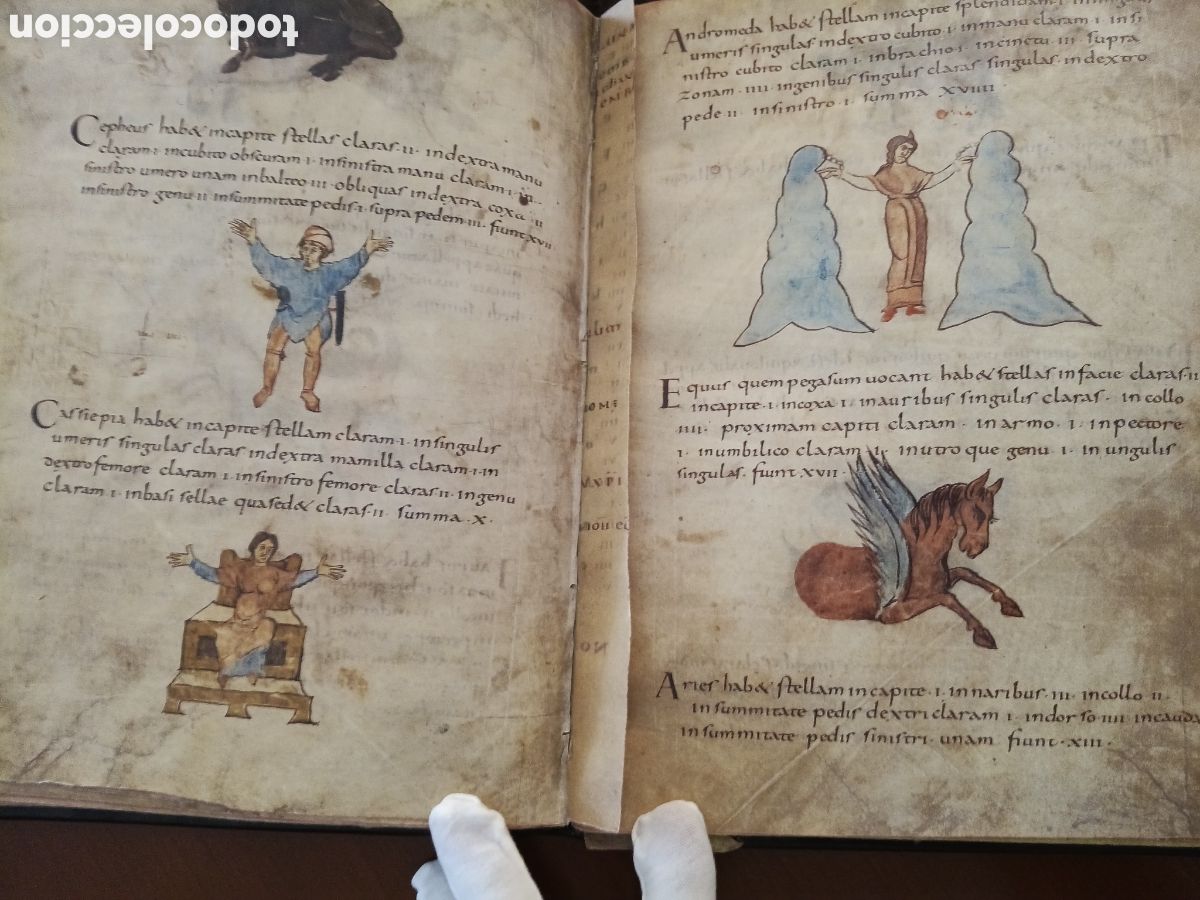 todocoleccion
Cepheus hab& incapite stellas claras·ii· indextra manu
claram·i· incubito obscuram·i· insinistra manu claram·i· in
sinistro umero unam inbalteo·iii·obliquas indextra coxa·ii
insinistro genu·ii· insummitate pedis·i·supra pedem·iii· fiunt xvii
Cassiepia hab& incapite stellam claram·i· insingulis
umeris singulas claras indextra mamilla claram·i·in
dextro femore claram·i·insinistro femore claras·ii· ingenu
claram·i· inbasi sellae quased& claras·ii· summa·x·
Andromeda hab& stellam incapite splendidam·i· in
umeris singulas indextro cubito·i· inmanu claram·i· insi
nistro cubito claram·i· inbrachio·i· incinctu·iii· supra
zonam·iiii· ingenibus singulis claras singulas indextro
pede·ii· insinistro·i· summa xviiii·
Equus quem pegasum uocant hab& stellas infacie claras·ii
incapite·i· incoxa·i· inauribus singulis claras· incollo
iiii· proximam capiti claram· inarmo·i· inpectore
i· inumbilico claram·i· inutroque genu·i· in ungulis
singulas· fiunt·xvii·
Aries hab& stellam incapite·i·innaribus·iii·incollo·ii·
insummitate pedis dextri claram·i· indorso·iiii·incauda
insummitate pedis sinistri·unam fiunt·xiii·